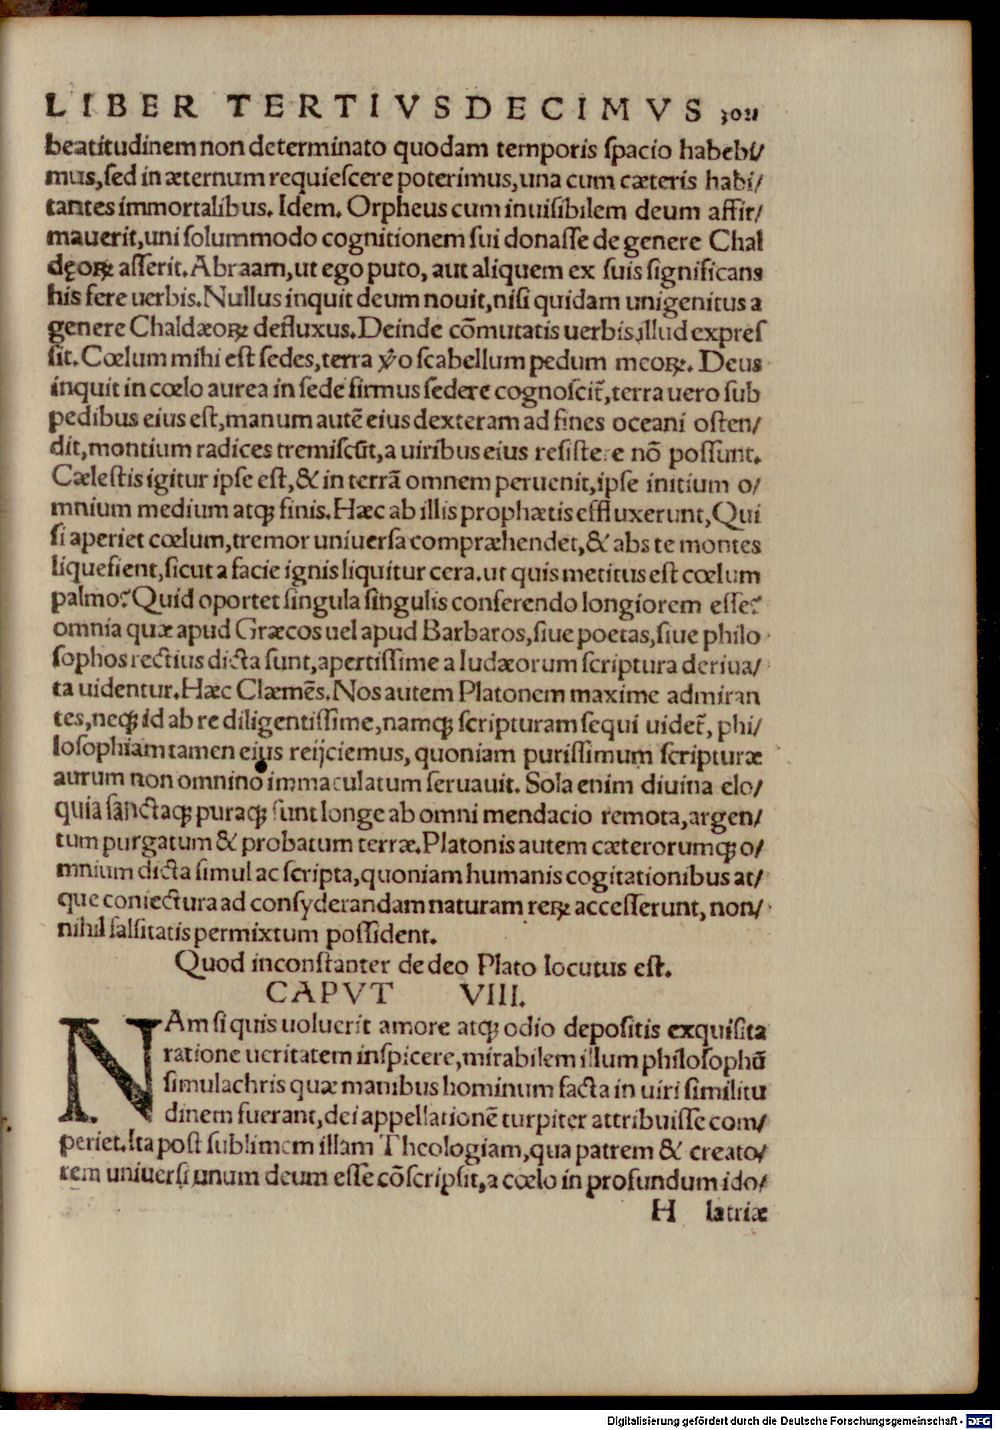 LIBER TERTIVSDECIMVS
beatitudinem non determinato quodam temporis spacio habebi/
mus, sed in æternum requiescere poterimus, una cum cæteris habi/
tantes immortalibus. Idem. Orpheus cum inuisibilem deum affir/
mauerit, uni solummodo cognitionem sui donasse de genere Chal
dęoꝝ asserit. Abraam, ut ego puto, aut aliquem ex suis significans
his fere uerbis. Nullus inquit deum nouit, nisi quidam unigenitus a
genere Chaldæoꝝ defluxus. Deinde cõmutatis uerbis, illud expres
sit. Cœlum mihi est sedes, terra ꝟo scabellum pedum meoꝝ. Deus
inquit in cœlo aurea in sede firmus sedere cognoscit᷑, terra uero sub
pedibus eius est, manum autẽ eius dexteram ad fines oceani osten/
dit, montium radices tremiscũt, a uiribus eius resistere nõ possunt.
Cælestis igitur ipse est, & in terrã omnem peruenit, ipse initium o/
mnium medium atqꝫ finis. Hæc ab illis prophætis effluxerunt, Qui
si aperiet cœlum, tremor uniuersa compræhendet, & abs te montes
liquefient, sicut a facie ignis liquitur cera. ut quis metitus est cœlum
palmo? Quid oportet singula singulis conferendo longiorem esse?
omnia quæ apud Græcos uel apud Barbaros, siue poetas, siue philo
sophos rectius dicta sunt, apertissime a Iudæorum scriptura deriua/
ta uidentur. Hæc Clæmẽs. Nos autem Platonem maxime admiran
tes, neqꝫ id ab re diligentissime, namqꝫ scripturam sequi uidet᷑, phi/
losophiam tamen eius reijciemus, quoniam purissimum scripturæ
aurum non omnino immaculatum seruauit. Sola enim diuina elo/
quia sanctaqꝫ puraqꝫ sunt longe ab omni mendacio remota, argen/
tum purgatum & probatum terræ. Platonis autem cæterorumqꝫ o/
mnium dicta simul ac scripta, quoniam humanis cogitationibus at/
que coniectura ad consyderandam naturam reꝝ accesserunt, non/
nihil falsitatis permixtum possident.
Quod inconstanter de deo Plato locutus est.
CAPVT VIII.
NAm si quis uoluerit amore atqꝫ odio depositis exquisita
ratione ueritatem inspicere, mirabilem illum philosophũ
simulachris quæ manibus hominum facta in uiri similitu
dinem fuerant, dei appellationẽ turpiter attribuisse com/
periet. Ita post sublimem illam Theologiam, qua patrem & creato/
rem uniuersi unum deum esse cõscripsit, a cœlo in profundum ido/
H latriæ
Digitalisierung gefördert durch die Deutsche Forschungsgemeinschaft - DFG